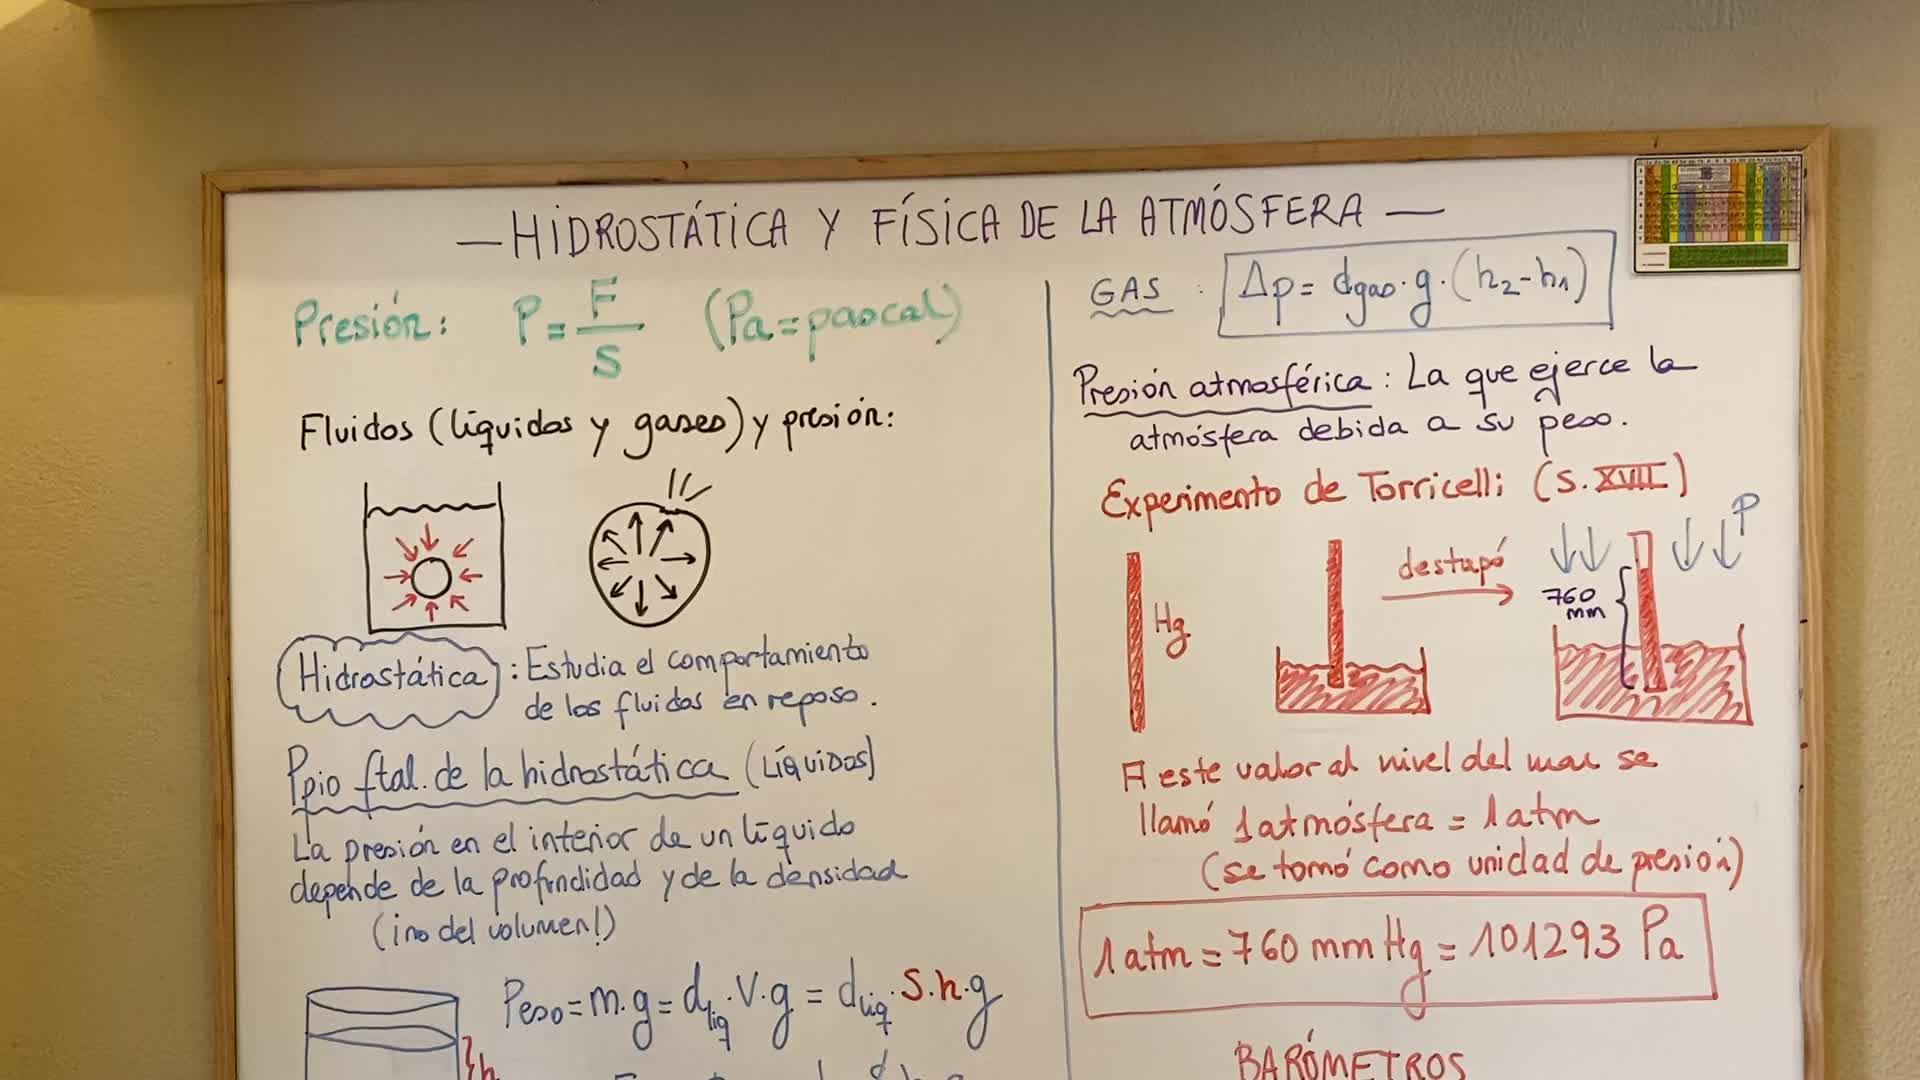 — HIDROSTÁTICA Y FÍSICA DE LA ATMÓSFERA —
Presión: P = F/S (Pa = pascal)
Fluidos (líquidos y gases) y presión:
Hidrostática : Estudia el comportamiento
de los fluidos en reposo.
Ppio ftal. de la hidrostática (LÍQUIDOS)
La presión en el interior de un líquido
depende de la profundidad y de la densidad
(¡no del volumen!)
Peso = m.g = dliq . V . g = dliq . S . h . g
h
GAS : Δp = dgas . g . (h2 - h1)
Presión atmosférica : La que ejerce la
atmósfera debida a su peso.
Experimento de Torricelli (S. XVII)
Hg
destapó
P
760
mm
A este valor al nivel del mar se
llamó 1 atmósfera = 1 atm
(se tomó como unidad de presión)
1 atm = 760 mm Hg = 101293 Pa
BARÓMETROS